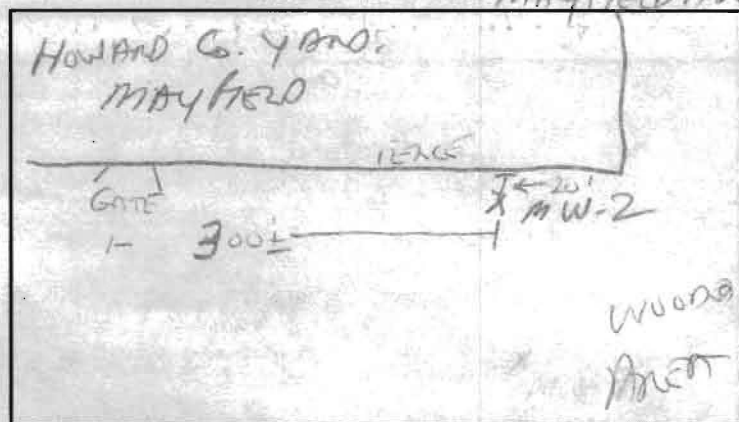 HOWARD CO. YARD.
MAYFIELD
FENCE
GATE
← 20'
MW-2
300±
WOODED
AREA